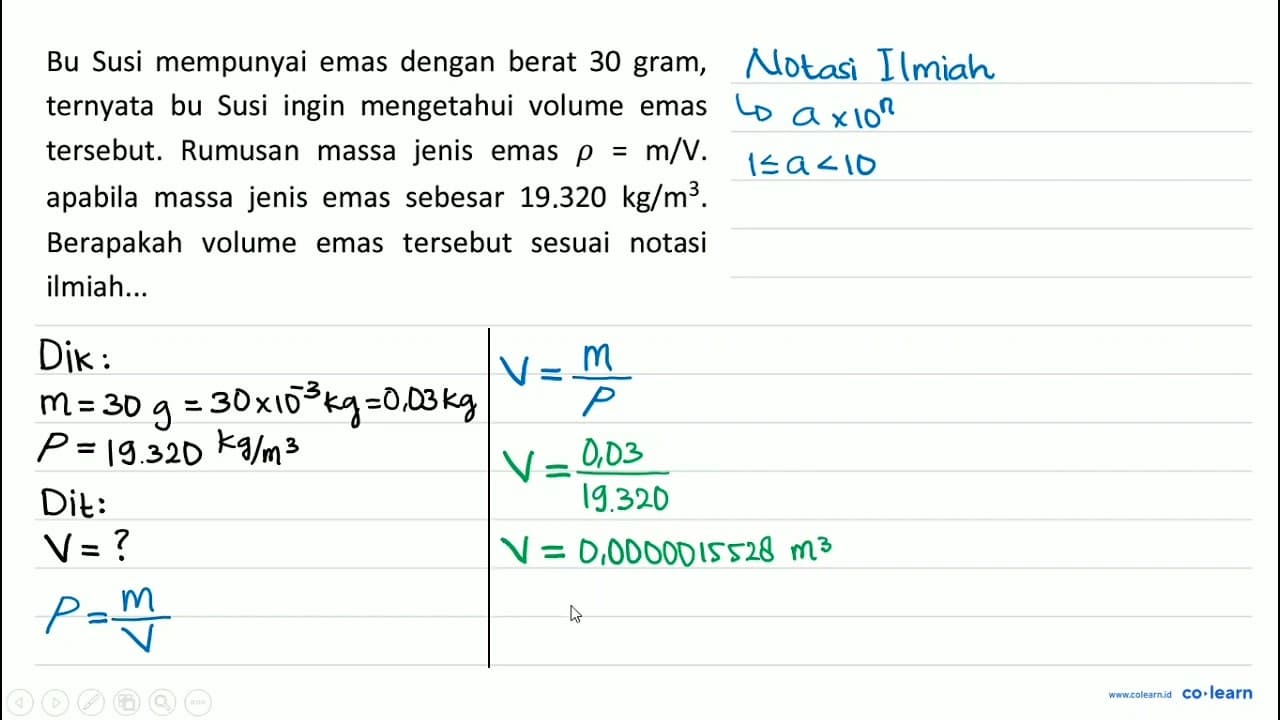 Bu Susi mempunyai emas dengan berat 30 gram,
ternyata bu Susi ingin mengetahui volume emas
tersebut. Rumusan massa jenis emas ρ = m/V.
apabila massa jenis emas sebesar 19.320 kg/m³.
Berapakah volume emas tersebut sesuai notasi
ilmiah...
Notasi Ilmiah
↳ a × 10ⁿ
1 ≤ a < 10
Dik:
m = 30 g = 30 × 10⁻³ kg = 0,03 kg
ρ = 19.320 kg/m³
Dit:
V = ?
ρ = m/V
V = m/ρ
V = 0,03/19.320
V = 0,0000015528 m³
www.colearn.id co·learn